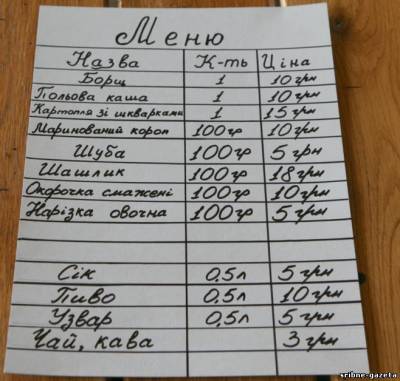 Меню
Назва К-ть Ціна
Борщ 1 10 грн
Польова каша 1 10 грн
Картопля зі шкварками 1 15 грн
Маринований короп 100гр 10 грн
Шуба 100гр 5 грн
Шашлик 100гр 18 грн
Окорочка смажені 100гр 10 грн
Нарізка овочна 100гр 5 грн
Сік 0,5л 5 грн
Пиво 0,5л 10 грн
Узвар 0,5л 5 грн
Чай, кава 3 грн
sribne-gazeta